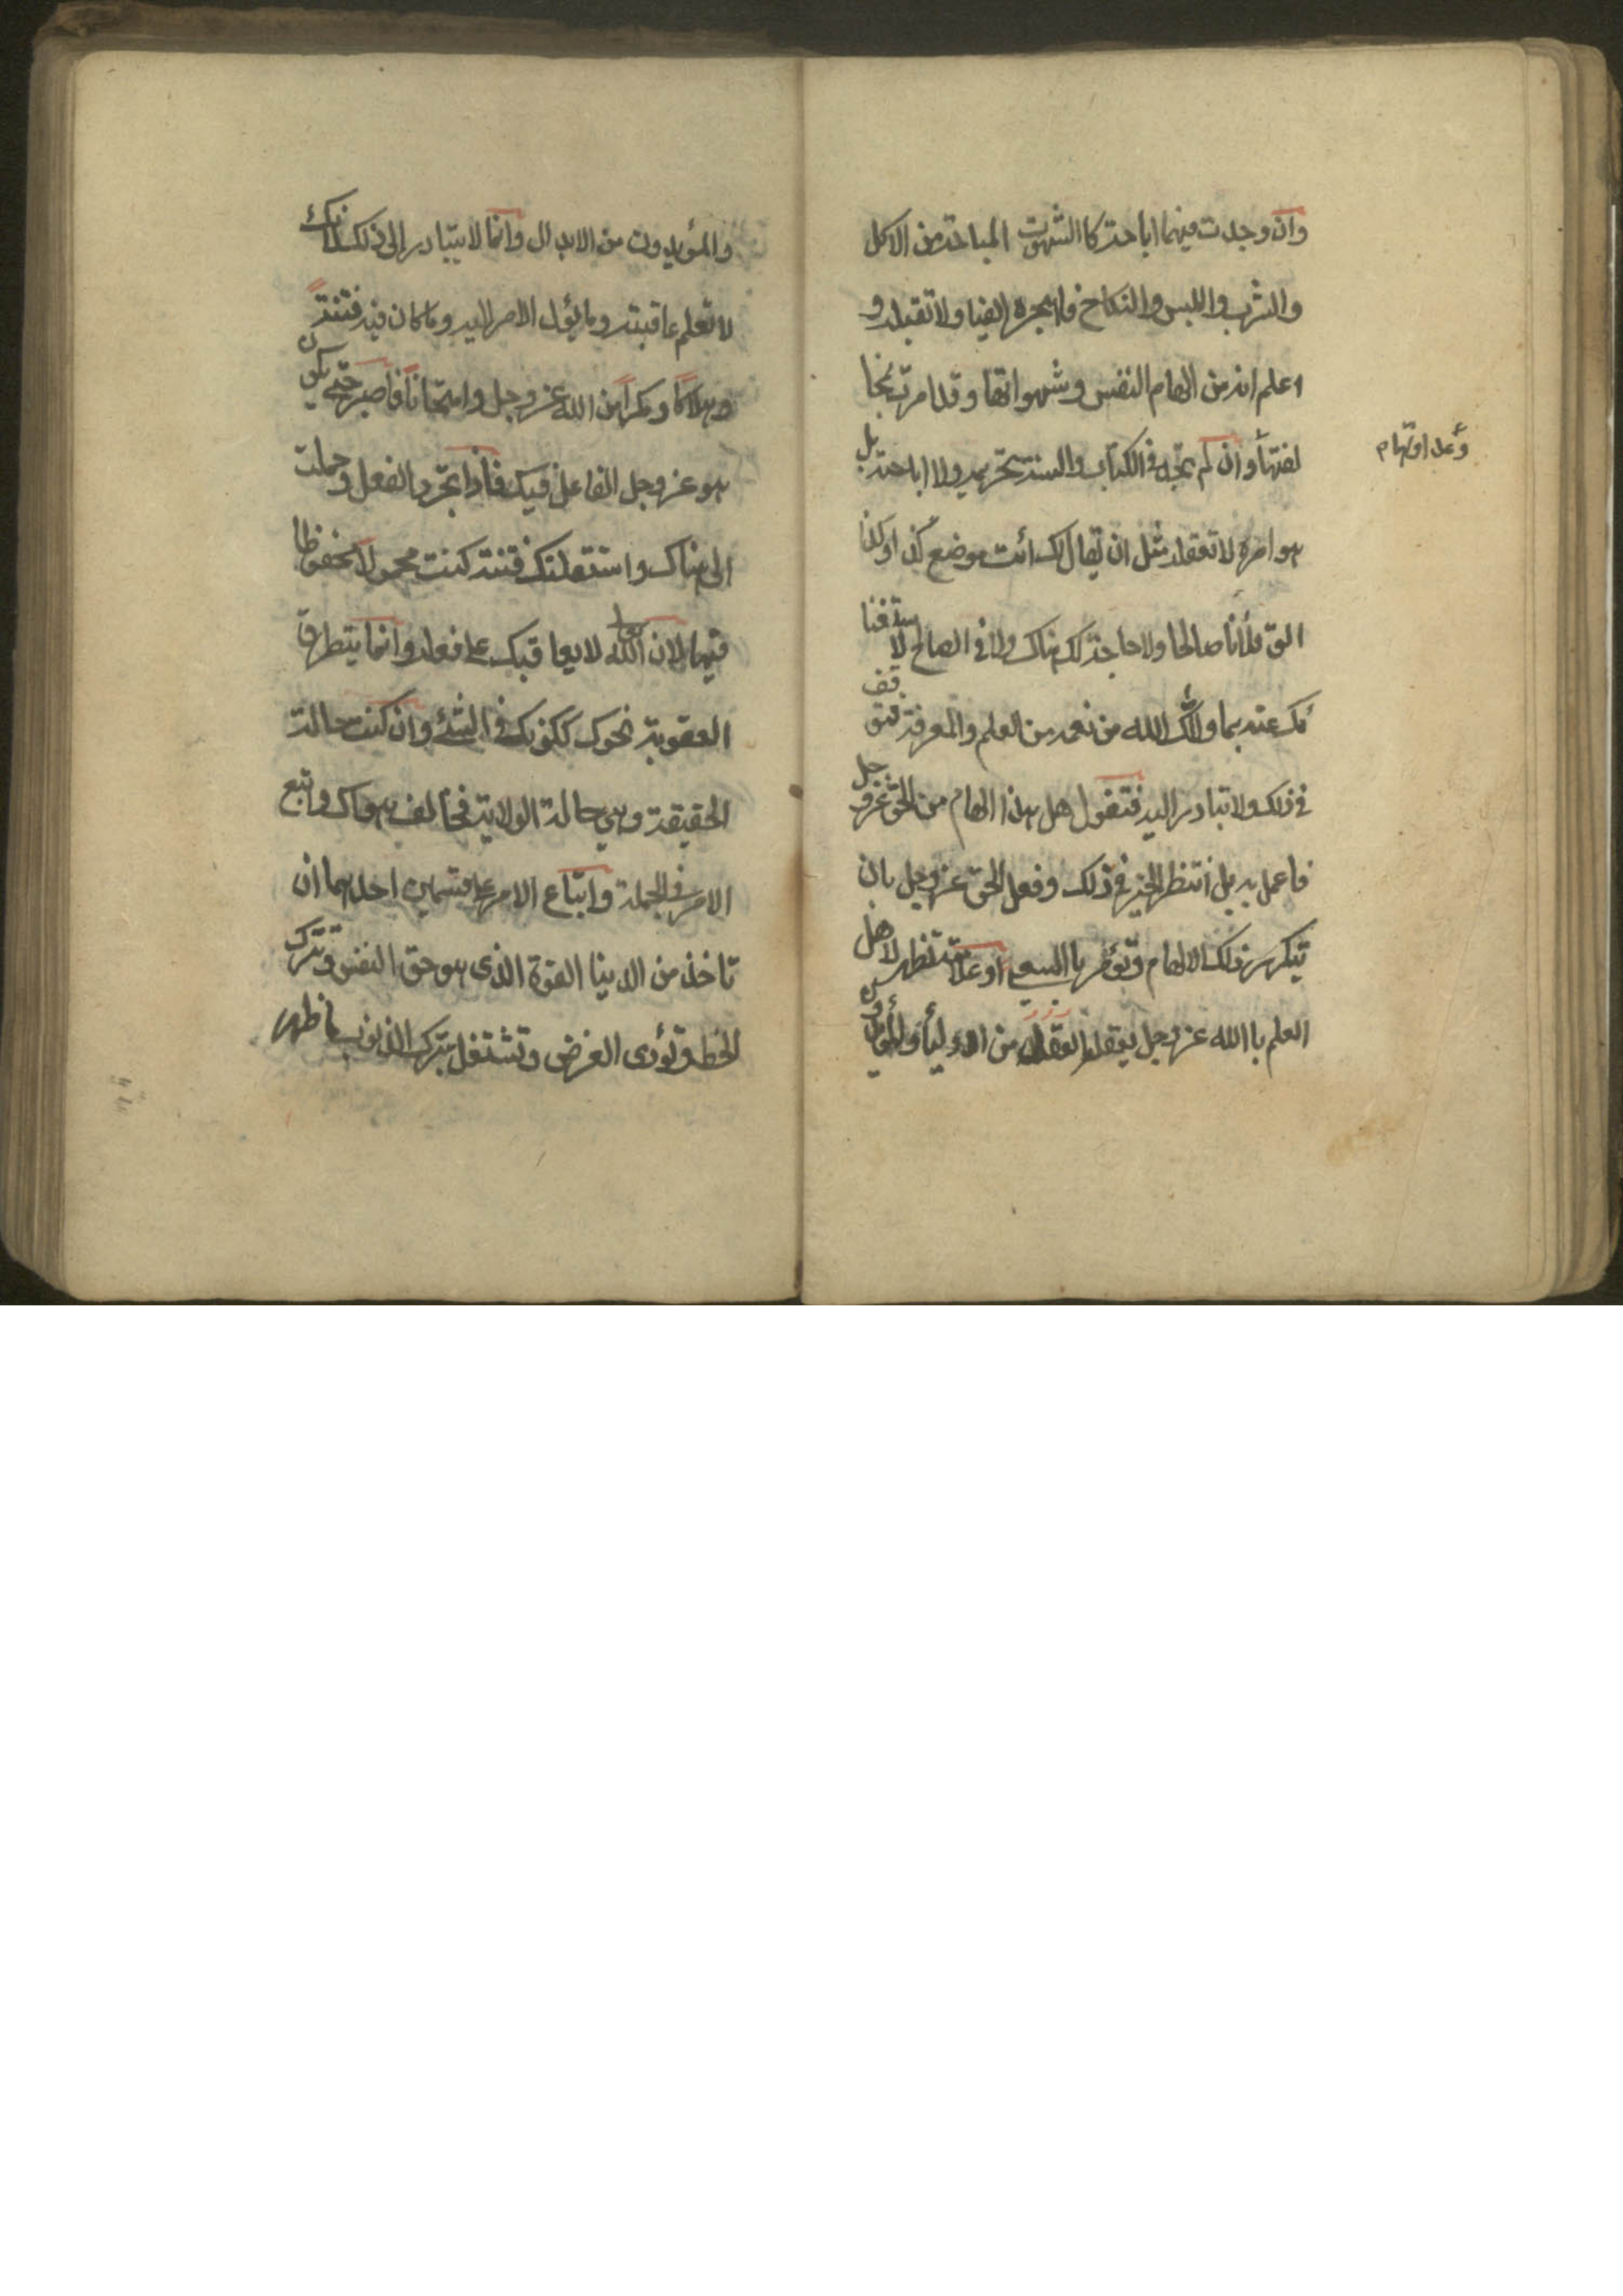 وان وجدت فيهما اباحته كا الشهوت المباحة من الاكل
والشرب واللبس والنكاح فاهجره ايضا ولا تقبله و
اعلم انه من الهام النفس وشهواتها وقد امرت بمخا
لفتها وان لم تجد في الكتاب والسنة تحريمه ولا اباحته بل
وعداوتهام
هو امر لا تعقله مثل ان يقال لك أئت موضع كذا وكذا
الق فلانا صالحا ولا حاجة لك هناك ولا في الصالح لا ستغنا
ئك عنه بما اولاك الله من نعمه من العلم والمعرفة فتوقف
في ذلك ولا تبادر اليه فتقول هل هذا الهام من الحق عز وجل
فاعمل به بل انتظر الخير في ذلك وفعل الحق عز وجل بان
يتكرر ذلك الالهام وتؤمر باالسعي او علامة تظهر لاهل
العلم باالله عز وجل يعقلها العقلاء من الاولياء
والمؤيدون من الابدال وانما لا يتبادر الى ذلك لانك
لا تعلم عاقبته وما يؤل الامر اليه وما كان فيه فتنة
وهلاكا ومكرا من الله عز وجل وامتحانا فاصبر حتى يكون
هو عز وجل الفاعل فيك فأذا تجرد الفعل وحملت
الى هناك واستقبلتك فتنة كنت محمولا محفوظا
فيها لان الله تعالى لا يعاقبك على فعله وانما يتطرق
العقوبة نحوك لكونك في الشئ وان كنت حالة
الحقيقة وهي حالة الولاية فخالف هواك واتبع
الامر في الجملة واتباع الامر على قسمين احدهما ان
تاخذ من الدنيا القوة الذي هو حق النفس وتترك
الحظ وتؤدى الفرض وتشتغل بترك الذنوب ما ظهر